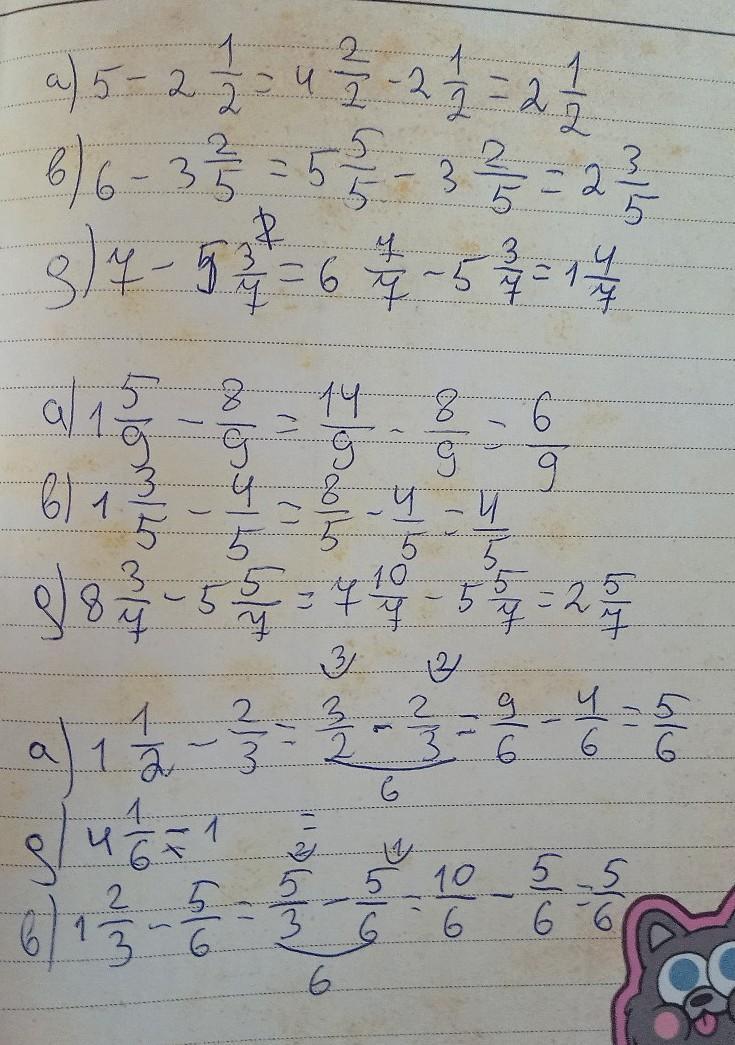 а) 5 - 2 1/2 = 4 2/2 - 2 1/2 = 2 1/2
в) 6 - 3 2/5 = 5 5/5 - 3 2/5 = 2 3/5
д) 7 - 5 3/7 = 6 7/7 - 5 3/7 = 1 4/7
а) 1 5/9 - 8/9 = 14/9 - 8/9 = 6/9
в) 1 3/5 - 4/5 = 8/5 - 4/5 = 4/5
д) 8 3/7 - 5 5/7 = 7 10/7 - 5 5/7 = 2 5/7
3 2
а) 1 1/2 - 2/3 = 3/2 - 2/3 = 9/6 - 4/6 = 5/6
6
д) 4 1/6 = 1 =
2 1
в) 1 2/3 - 5/6 = 5/3 - 5/6 = 10/6 - 5/6 = 5/6
6